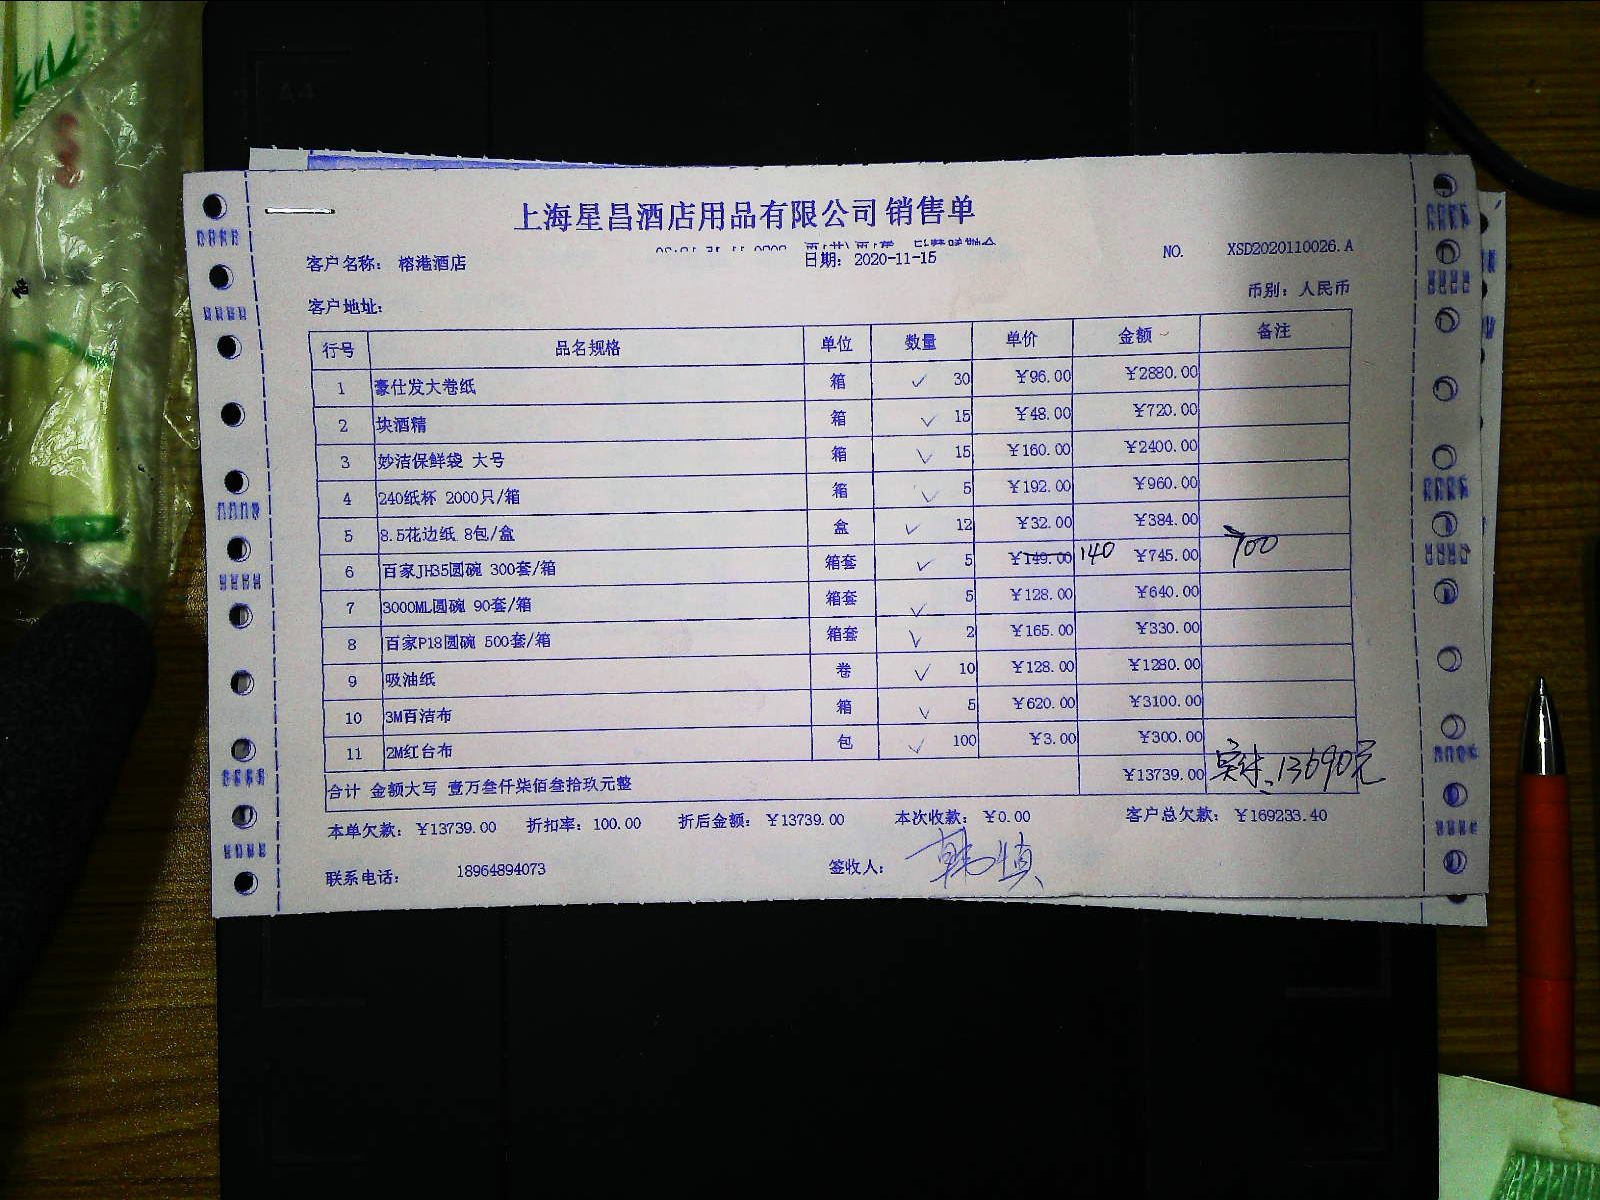 上海星昌酒店用品有限公司 销售单
客户名称： 榕港酒店 日期： 2020-11-15 NO. XSD2020110026.A
客户地址： 币别：人民币
行号 品名规格 单位 数量 单价 金额 备注
1 豪仕发大卷纸 箱 ✓ 30 ¥96.00 ¥2880.00
2 块酒精 箱 ✓ 15 ¥48.00 ¥720.00
3 妙洁保鲜袋 大号 箱 ✓ 15 ¥160.00 ¥2400.00
4 240纸杯 2000只/箱 箱 ✓ 5 ¥192.00 ¥960.00
5 8.5花边纸 8包/盒 盒 ✓ 12 ¥32.00 ¥384.00
6 百家JH35圆碗 300套/箱 箱套 ✓ 5 ¥149.00 140 ¥745.00 700
7 3000ML圆碗 90套/箱 箱套 ✓ 5 ¥128.00 ¥640.00
8 百家P18圆碗 500套/箱 箱套 ✓ 2 ¥165.00 ¥330.00
9 吸油纸 卷 ✓ 10 ¥128.00 ¥1280.00
10 3M百洁布 箱 ✓ 5 ¥620.00 ¥3100.00
11 2M红台布 包 ✓ 100 ¥3.00 ¥300.00
合计 金额大写 壹万叁仟柒佰叁拾玖元整 ¥13739.00 实计：13690元
本单欠款：¥13739.00 折扣率：100.00 折后金额：¥13739.00 本次收款：¥0.00 客户总欠款：¥169233.40
联系电话： 18964894073 签收人： 韩慎